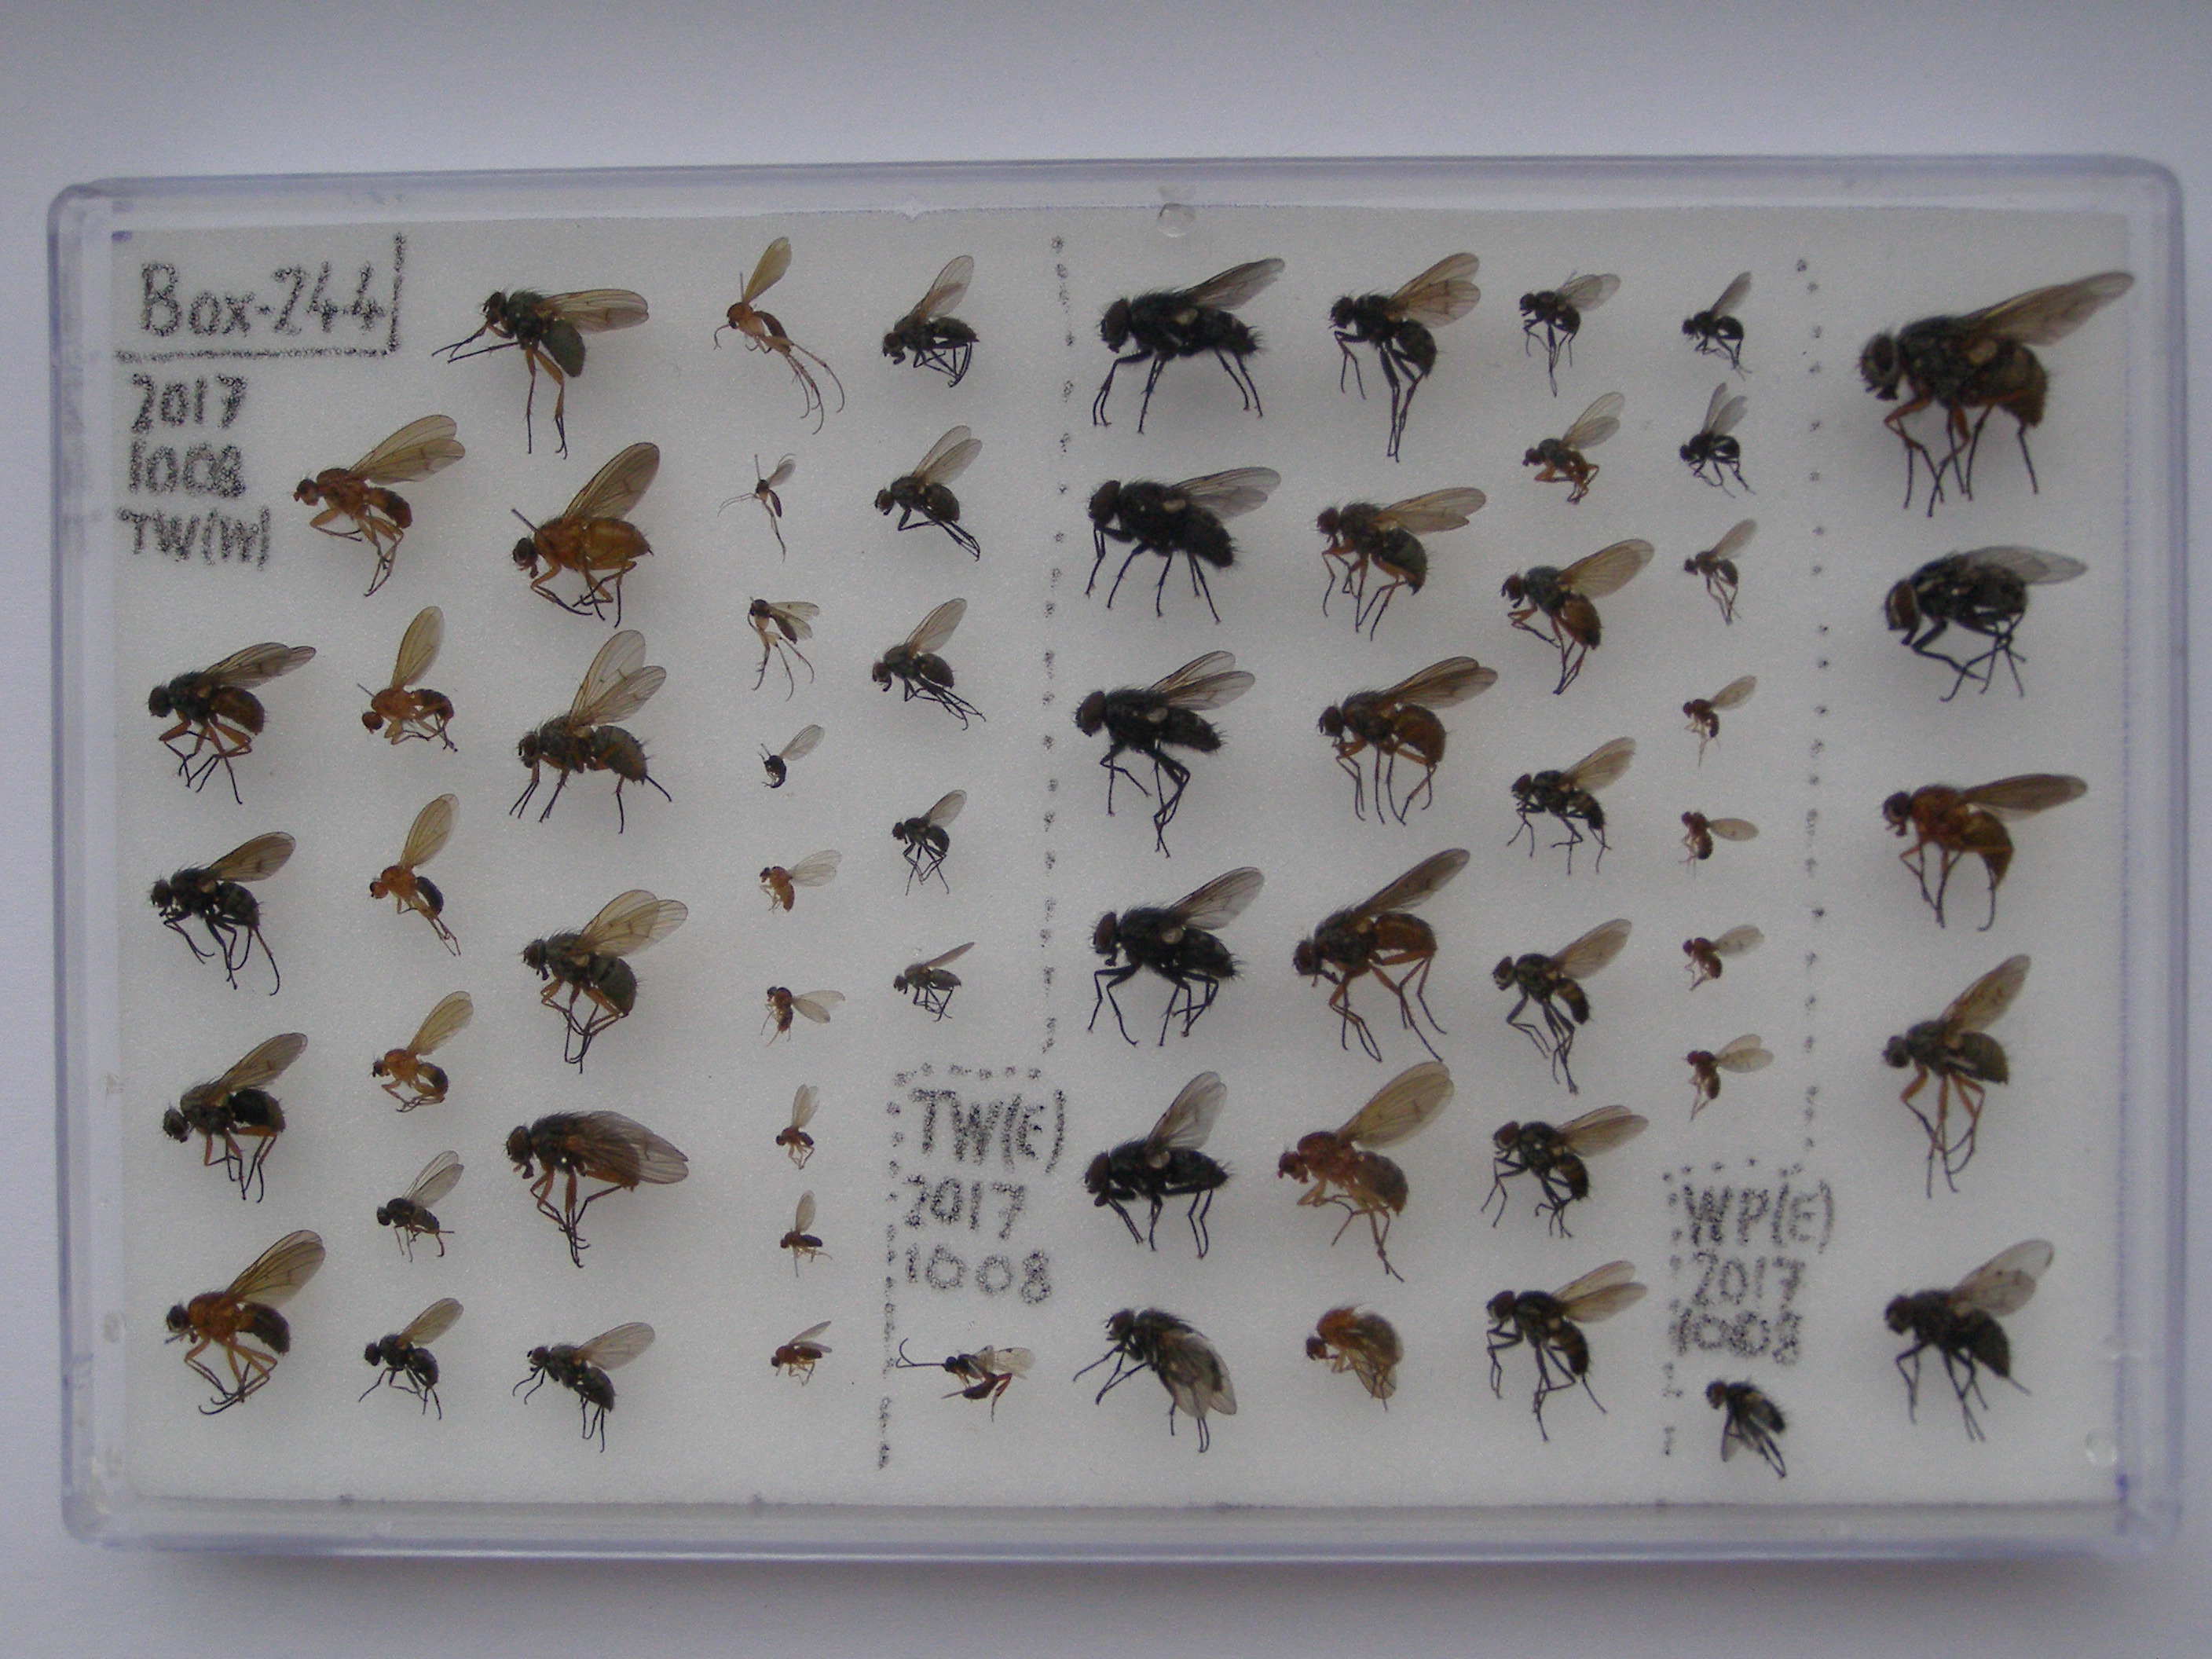 Box-244
2017
1008
TW(W)
TW(E)
2017
1008
WP(E)
2017
1008